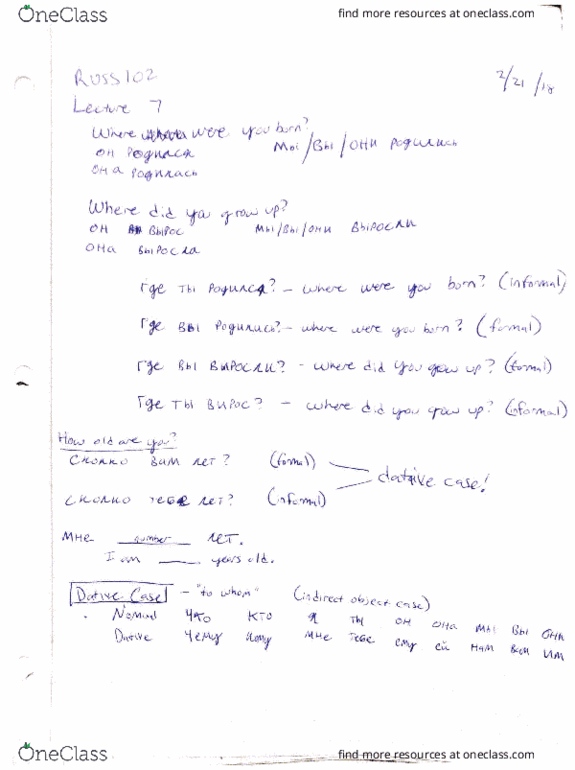 OneClass find more resources at oneclass.com
RUSS102 2/21/18
Lecture 7
Where were you born?
он родился Мы/Вы/они родились
она родилась
Where did you grow up?
он вырос мы/вы/они выросли
она выросла
Где ты родился? - where were you born? (informal)
Где вы родились? - where were you born? (formal)
Где вы виросли? - where did you grow up? (formal)
Где ты вирос? - where did you grow up? (informal)
How old are you?
Сколко вам лет? (formal)
dative case!
сколко тебе лет? (informal)
Мне number лет.
I am ____ years old.
Dative Case - "to whom" (indirect object case)
Что кто я ты он она мы вы они
Dative Чему кому мне тебе ему ей нам вам им
OneClass find more resources at oneclass.com